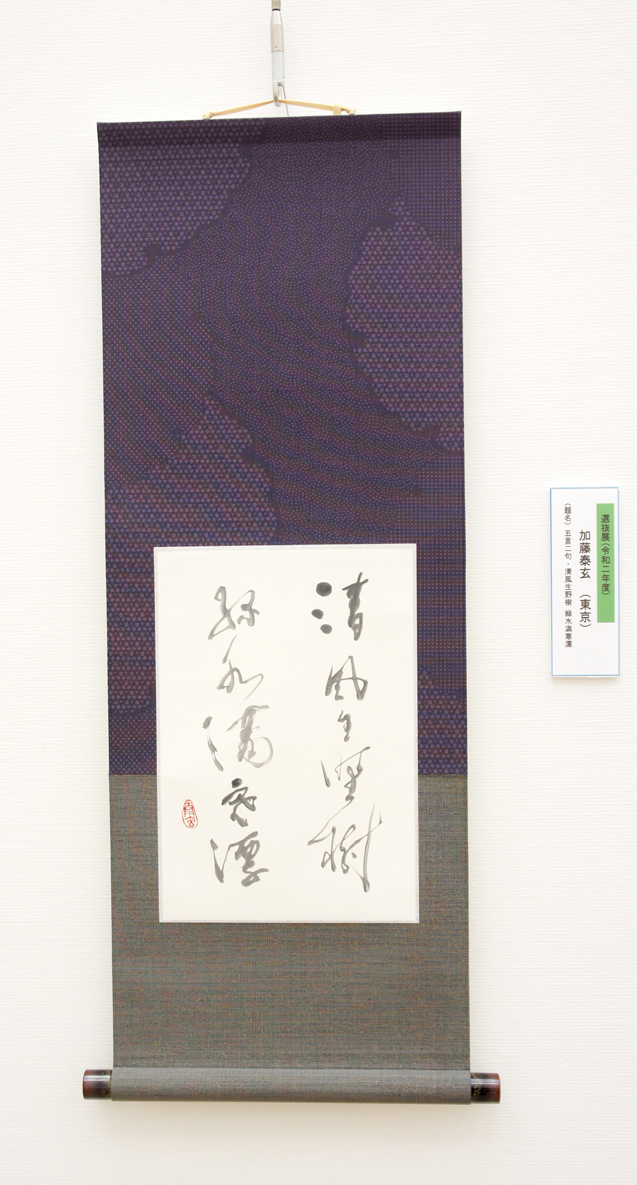 清風生野樹
緑水満寒潭
選抜展(令和二年度)
加藤泰玄 (東京)
〈題名〉五言二句・清風生野樹 緑水満寒潭